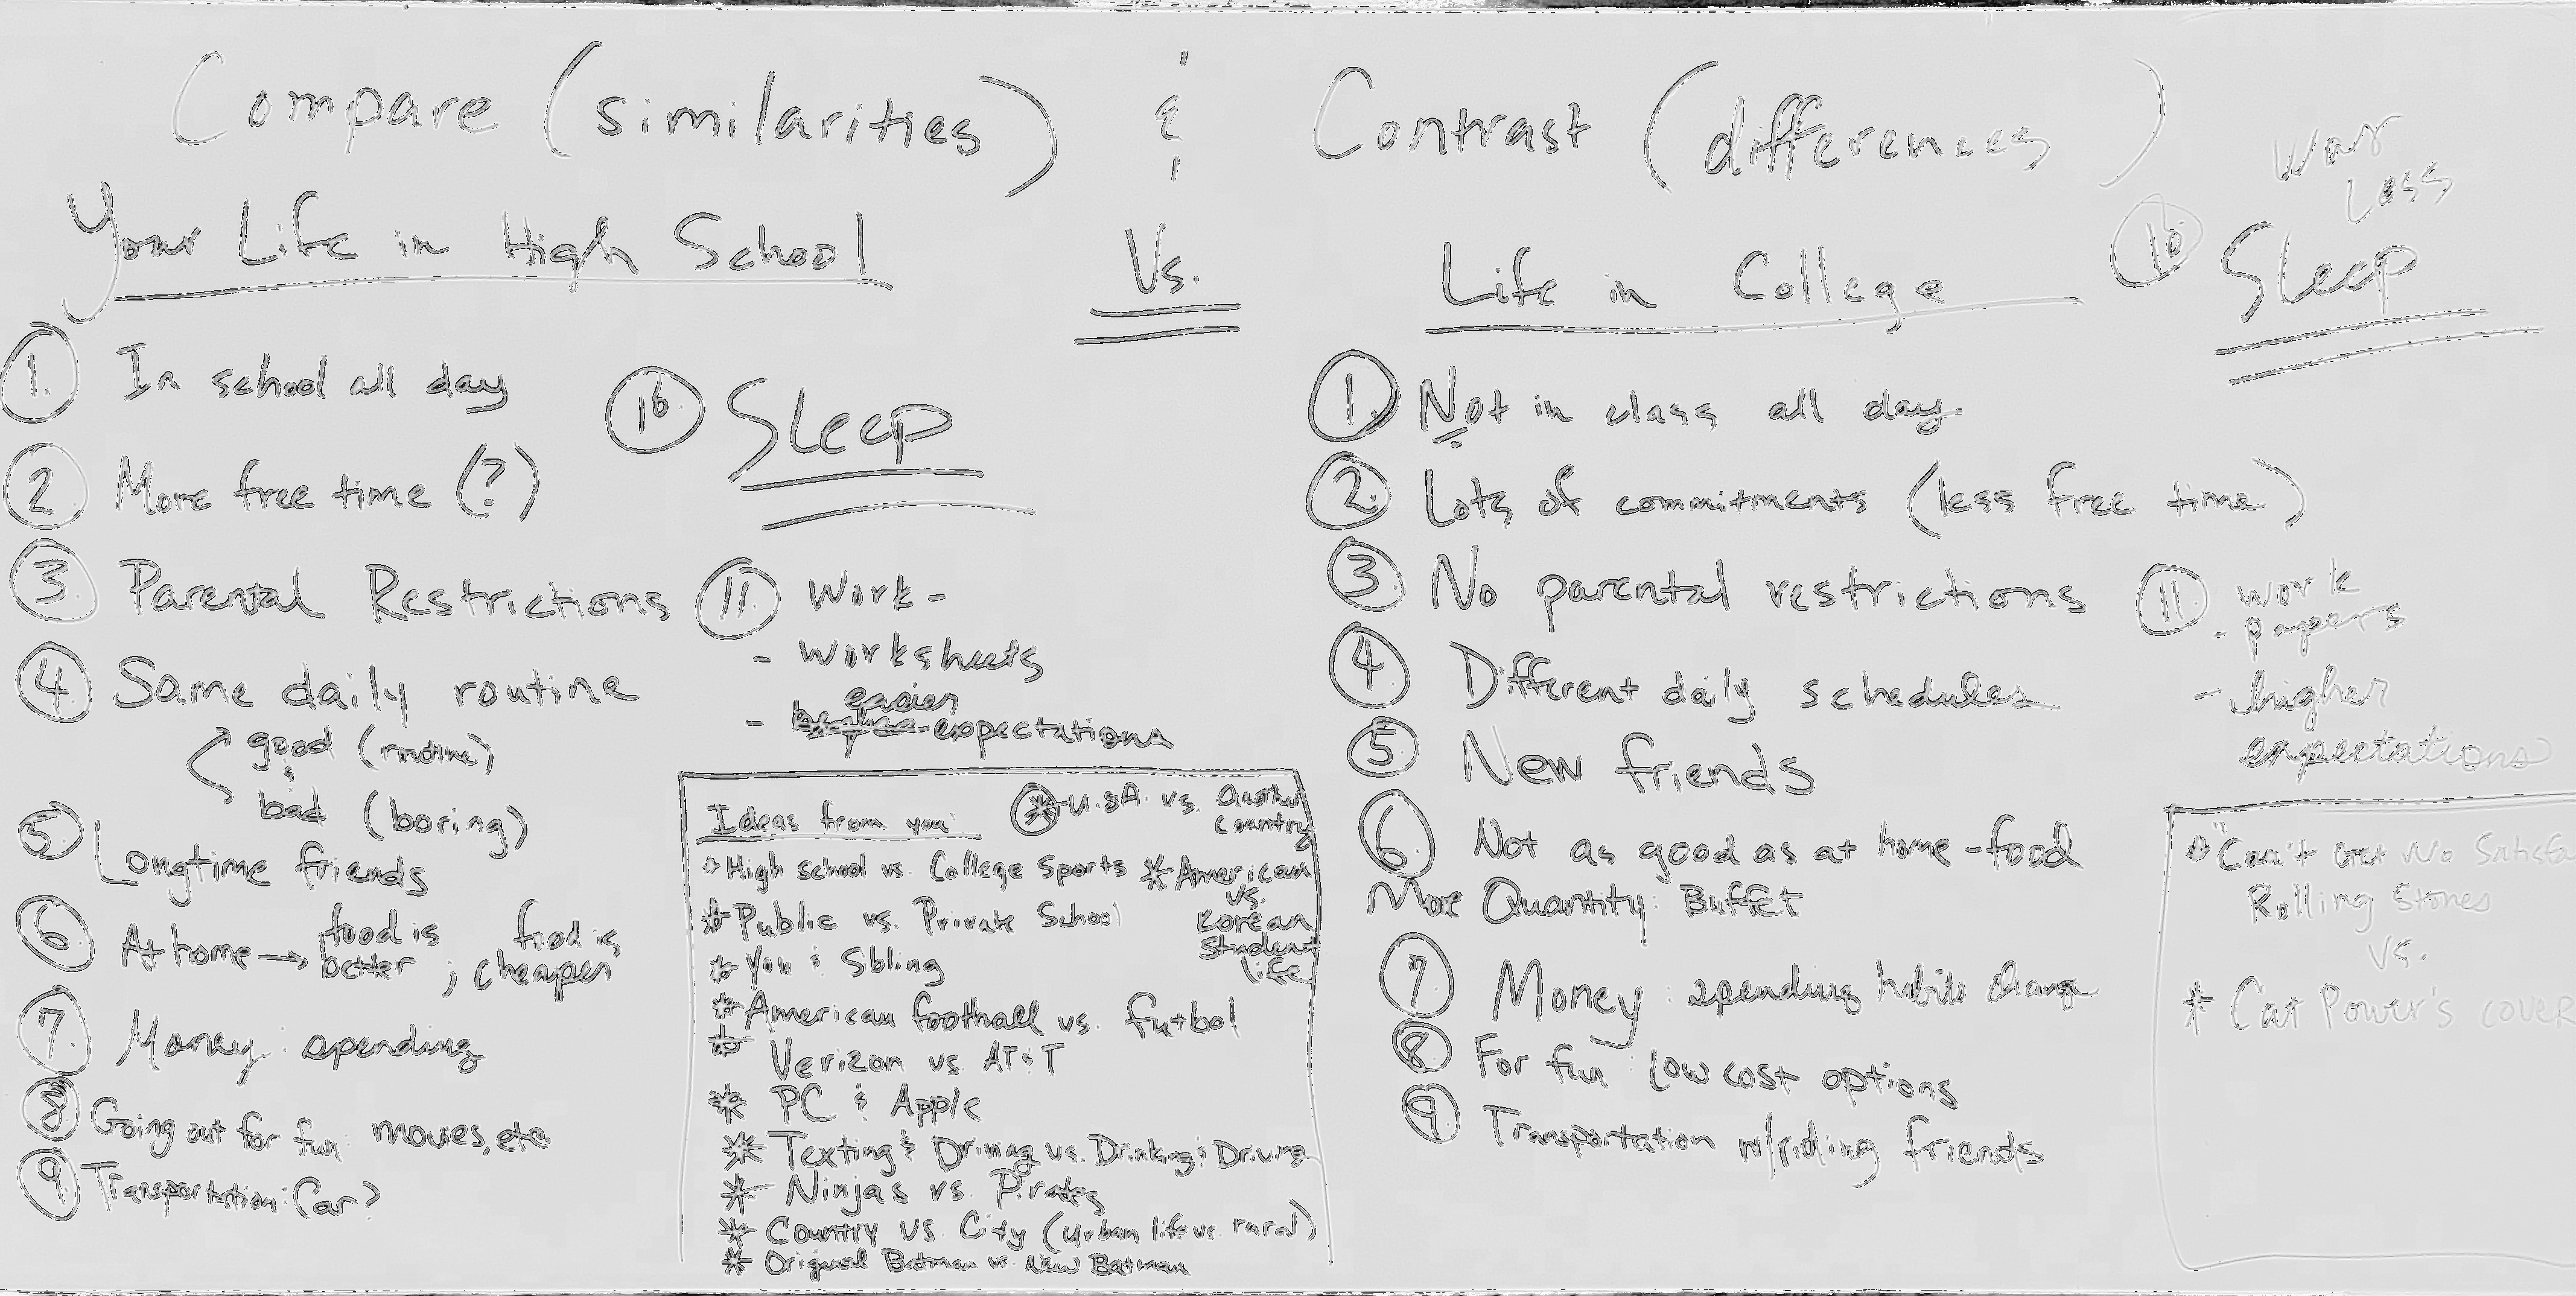 Compare (similarities) & Contrast (differences)
Your Life in High School
Vs.
Life in College
1. In school all day
2 More free time (?)
3 Parental Restrictions
4 Same daily routine
good (routine)
&
bad (boring)
5 Longtime friends
6 At home → food is better ; food is cheaper
7. Money spending
8 Going out for fun movies, etc
9 Transportation: Car?
10. Sleep
11 Work -
- worksheets
easier
- expectations
Ideas from you:
* U.S.A. vs. Another Country
High school vs. College Sports
* American vs. Korean Student life
* Public vs. Private School
* You & Sbling
* American football vs. futbol
* Verizon vs. AT&T
* PC & Apple
* Texting & Driving vs. Drinking & Driving
* Ninjas vs. Pirates
* Country vs City (Urban life vs. rural)
* Original Batman vs. New Batman
1. Not in class all day.
2. Lots of commitments (less free time)
3 No parental restrictions
4 Different daily schedules
5 New friends
6 Not as good as at home - food
More Quantity: Buffet
7 Money: spending habits change
8 For fun: low cost options
9 Transportation w/riding friends
Loss
10 Sleep
11 work
- papers
- higher
expectations
"Can't Get No
Rolling Stones
vs.
* Cat Power's cover